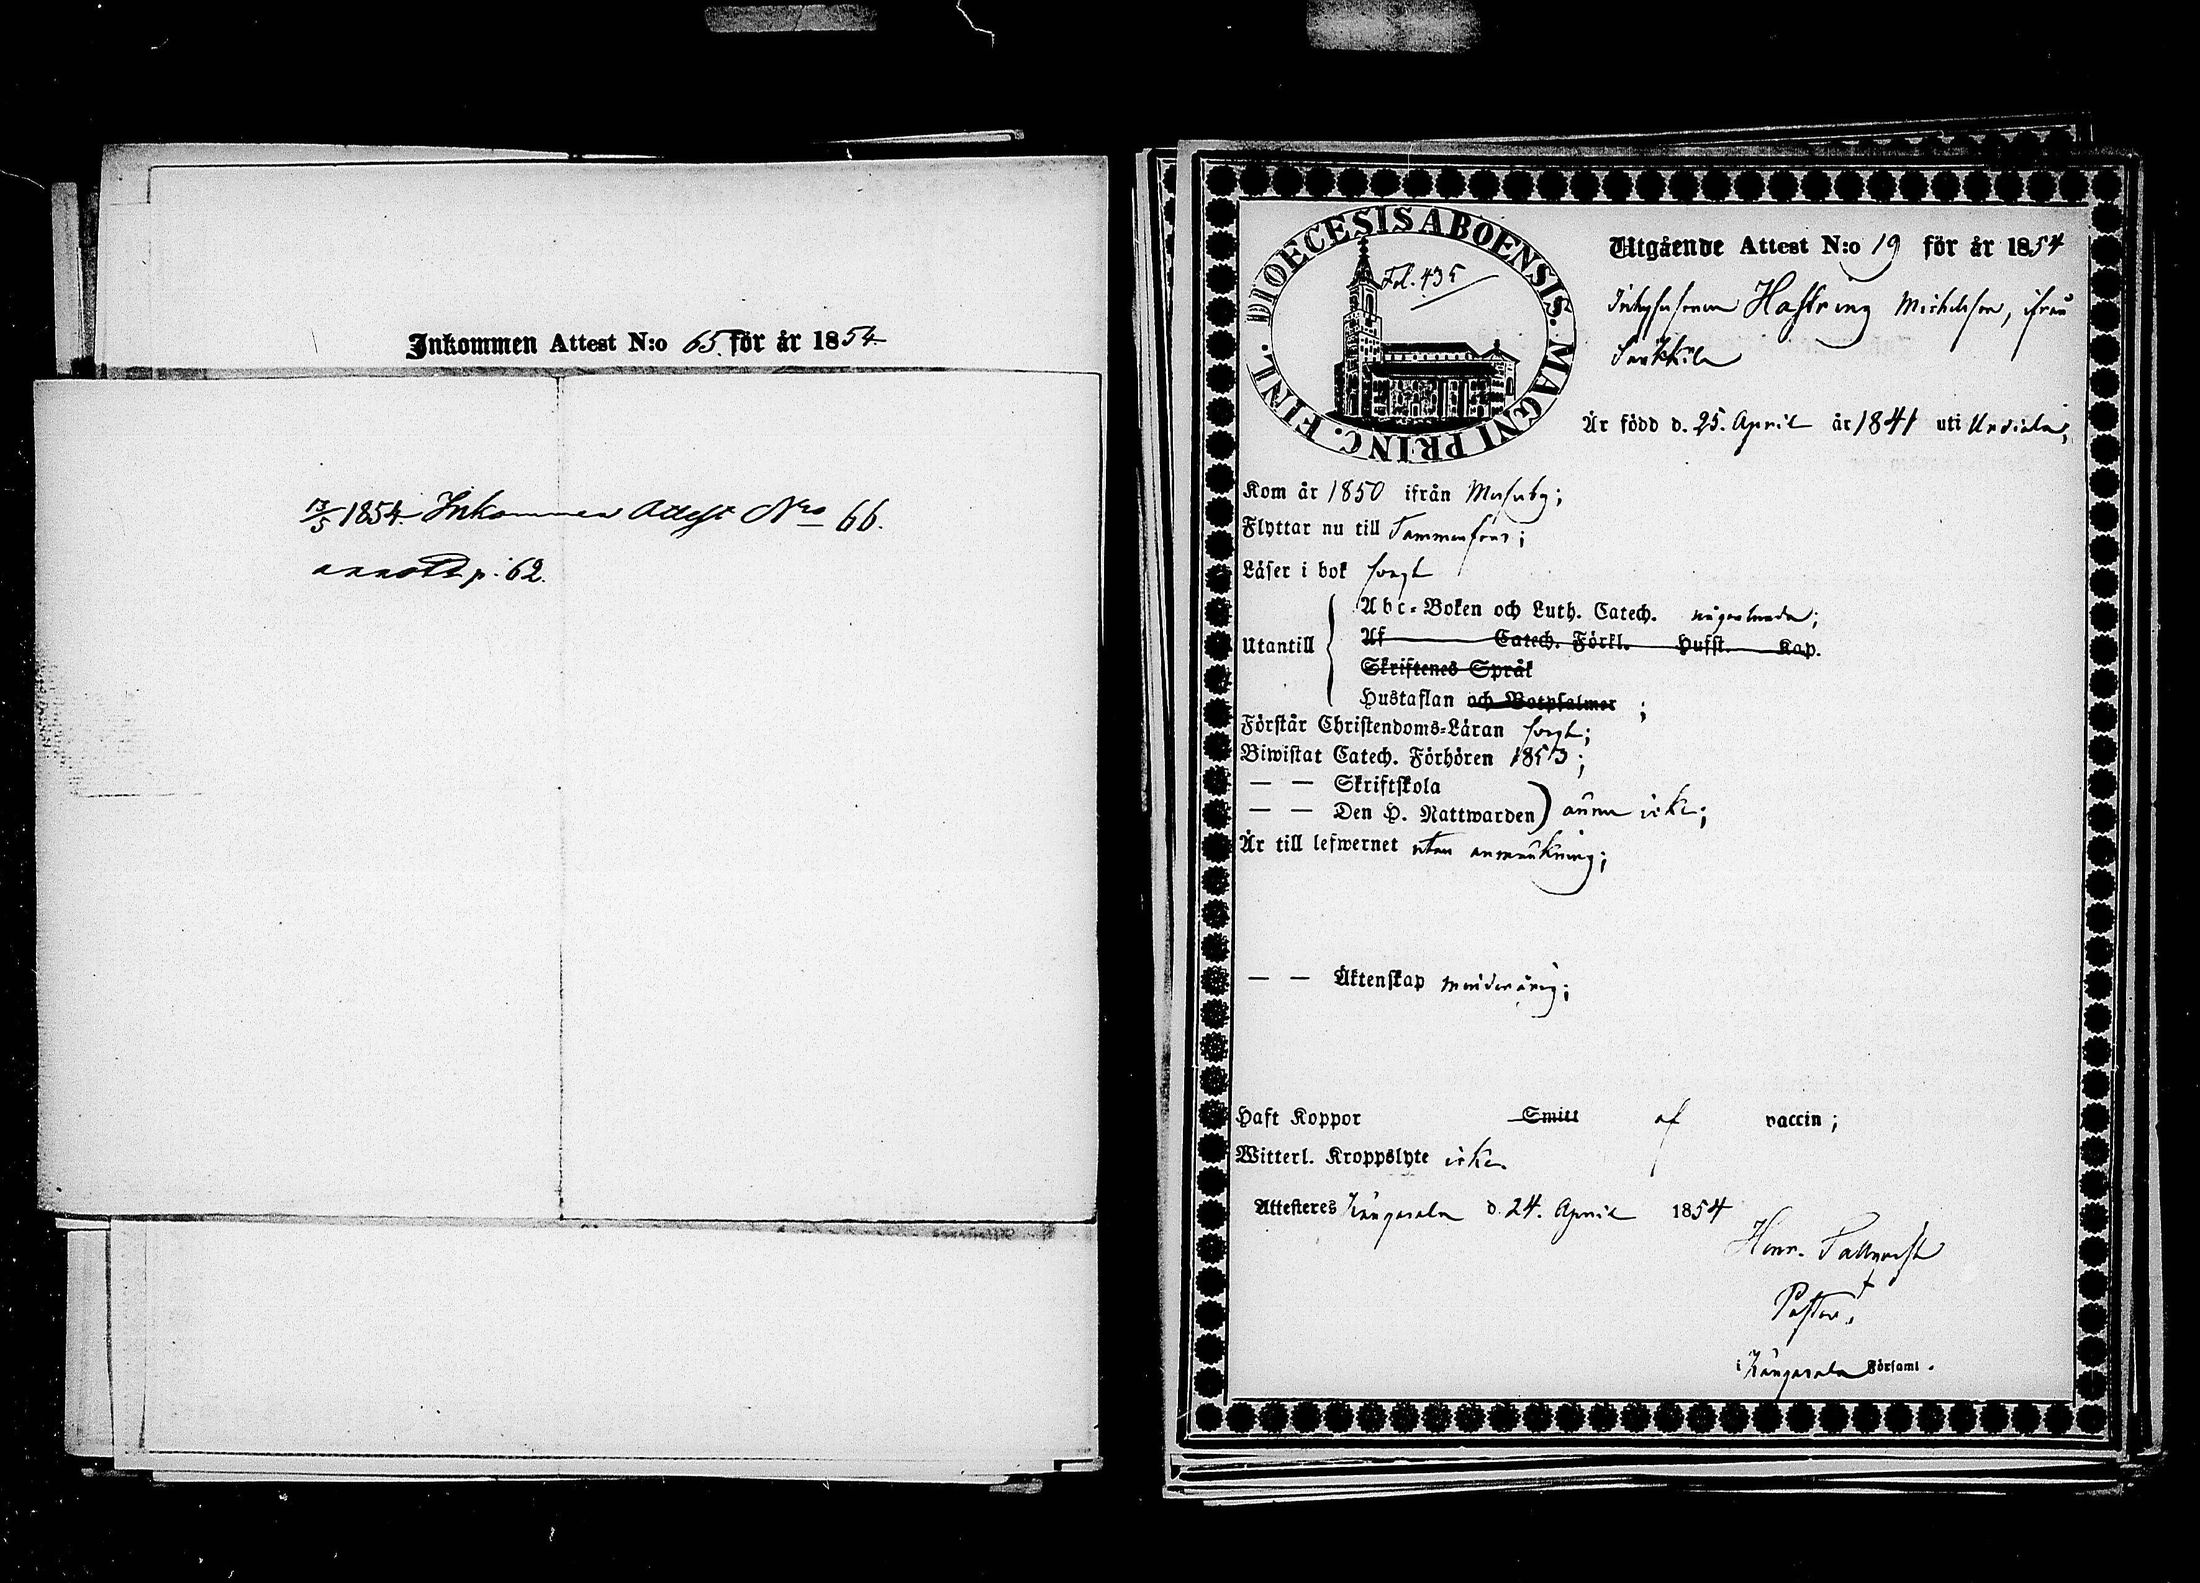 Inkommen Attest N:o 65. för år 1854.
1854. Inkommen Attest Nro 66.
annott p. 62.
DIOECESIS ABOENSIS. MAGNI PRINC. FINL.
Fol. 435
Utgående Attest N:o 19 för år 1854
Michelsson, ifrån
Är född d. 25. April år 1841 uti Urdiala;
Kom år 1850 ifrån Messuby;
Flyttar nu till Tammerfors;
Läser i bok svagt
Utantill
Abc-Boken och Luth. Catech. någorlunda;
Af Catech. Förkl. Hufst. Kap.
Skriftenes Språk
Hustaflan och Botpsalmer ;
Förstår Christendoms-Läran svagt;
Biwistat Catech. Förhören 1853;
— — Skriftskola
— — Den H. Nattwarden) ännu icke;
Är till lefwernet utan anmärkning;
— — Äktenskap minderårig;
Haft Koppor Smitt af vaccin;
Witterl. Kroppslyte icke.
Attesteres Kångasala d. 24. April 1854
Henr. Tallqvist
Pastor.
i Kångasala Församl.